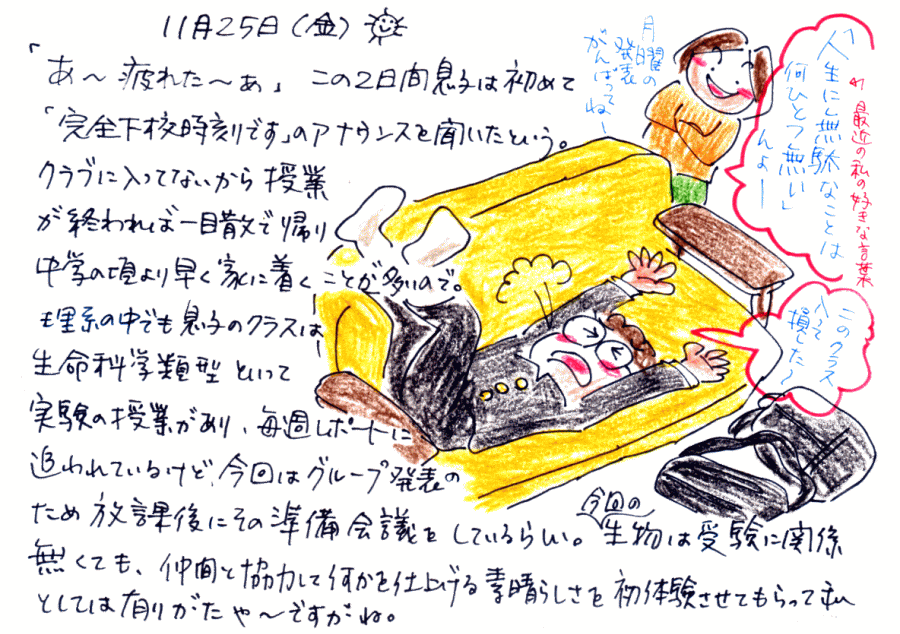 11月25日(金)
「あ〜疲れた〜ぁ」この2日間息子は初めて
「完全下校時刻です」のアナウンスを聞いたという。
クラブに入ってないから授業
が終われば一目散で帰り
中学の頃より早く家に着くことが多いので。
理系の中でも息子のクラスは
生命科学類型といって
実験の授業があり、毎週レポートに
追われているけど、今回はグループ発表の
ため放課後にその準備会議をしているらしい。今回の生物は受験に関係
無くても、仲間と協力して何かを仕上げる素晴らしさを初体験させてもらって私
としては有りがたや〜ですがね。
月曜の
発表
がんばって
ね〜
「人生に無駄なことは
何ひとつ無い」
んよ〜
↰ 最近の私の好きな言葉
このクラス
入って
損した〜